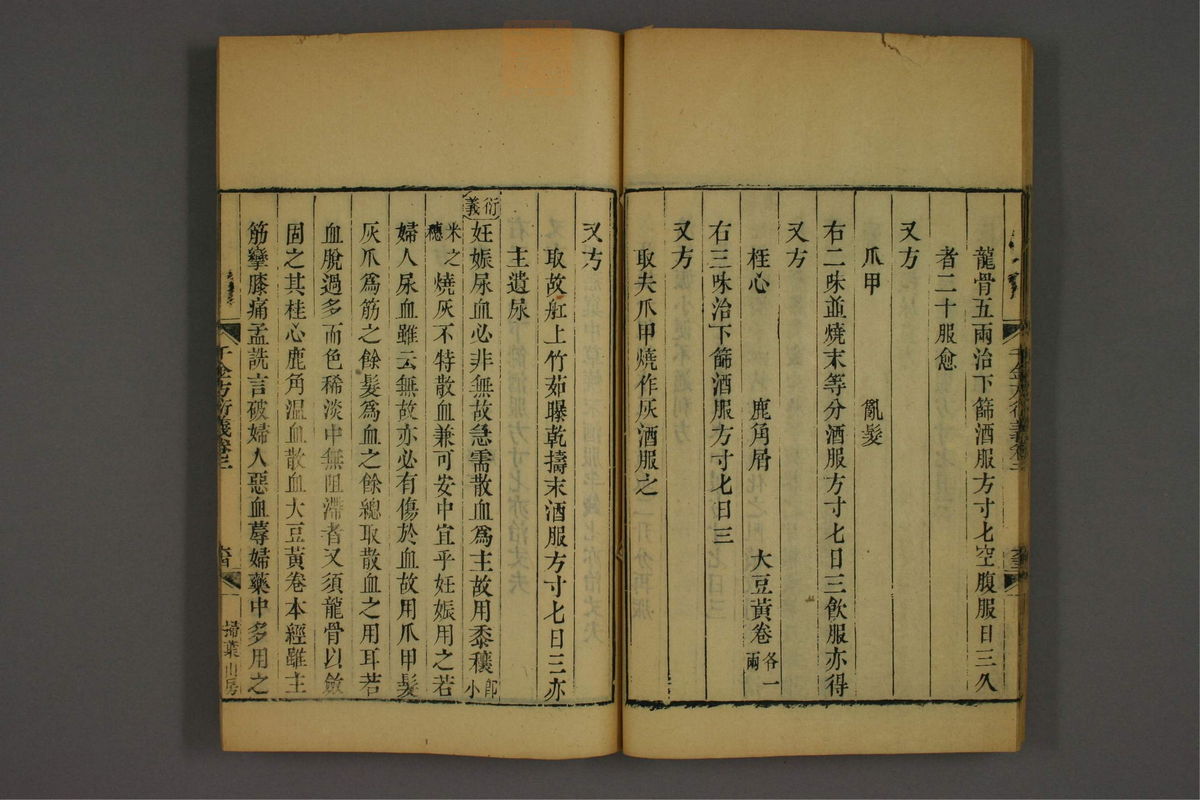 龍骨五兩治下篩酒服方寸匕空腹服日三久
者二十服愈
又方
爪甲　亂髮
右二味並燒末等分酒服方寸匕日三飲服亦得
又方
桂心　鹿角屑　大豆黃卷各一兩
右三味治下篩酒服方寸匕日三
又方
取夫爪甲燒作灰酒服之
又方
取故舡上竹茹曝乾擣末酒服方寸匕日三亦
主遺尿
衍義妊娠尿血必非無故急需散血為主故用黍穰即小
米之穗燒灰不特散血兼可安中宜乎妊娠用之若
婦人尿血雖云無故亦必有傷於血故用爪甲髮
灰爪為筋之餘髮為血之餘總取散血之用耳若
血脫過多而色稀淡中無阻滯者又須龍骨以斂
固之其桂心鹿角溫血散血大豆黃卷本經雖主
筋攣膝痛孟詵言破婦人惡血蓐婦藥中多用之
千金方衍義卷三
掃葉山房